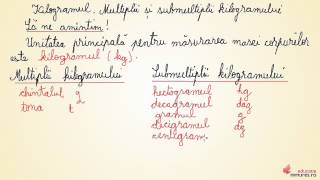 Kilogramul. Multiplii și submultiplii kilogramului
Să ne amintim!
Unitatea principală pentru măsurarea masei corpurilor
este kilogramul (kg).
Multiplii kilogramului
Submultiplii kilogramului
chintalul q
tona t
hectogramul hg
decagramul dag
gramul g
decigramul dg
centigram
educatie